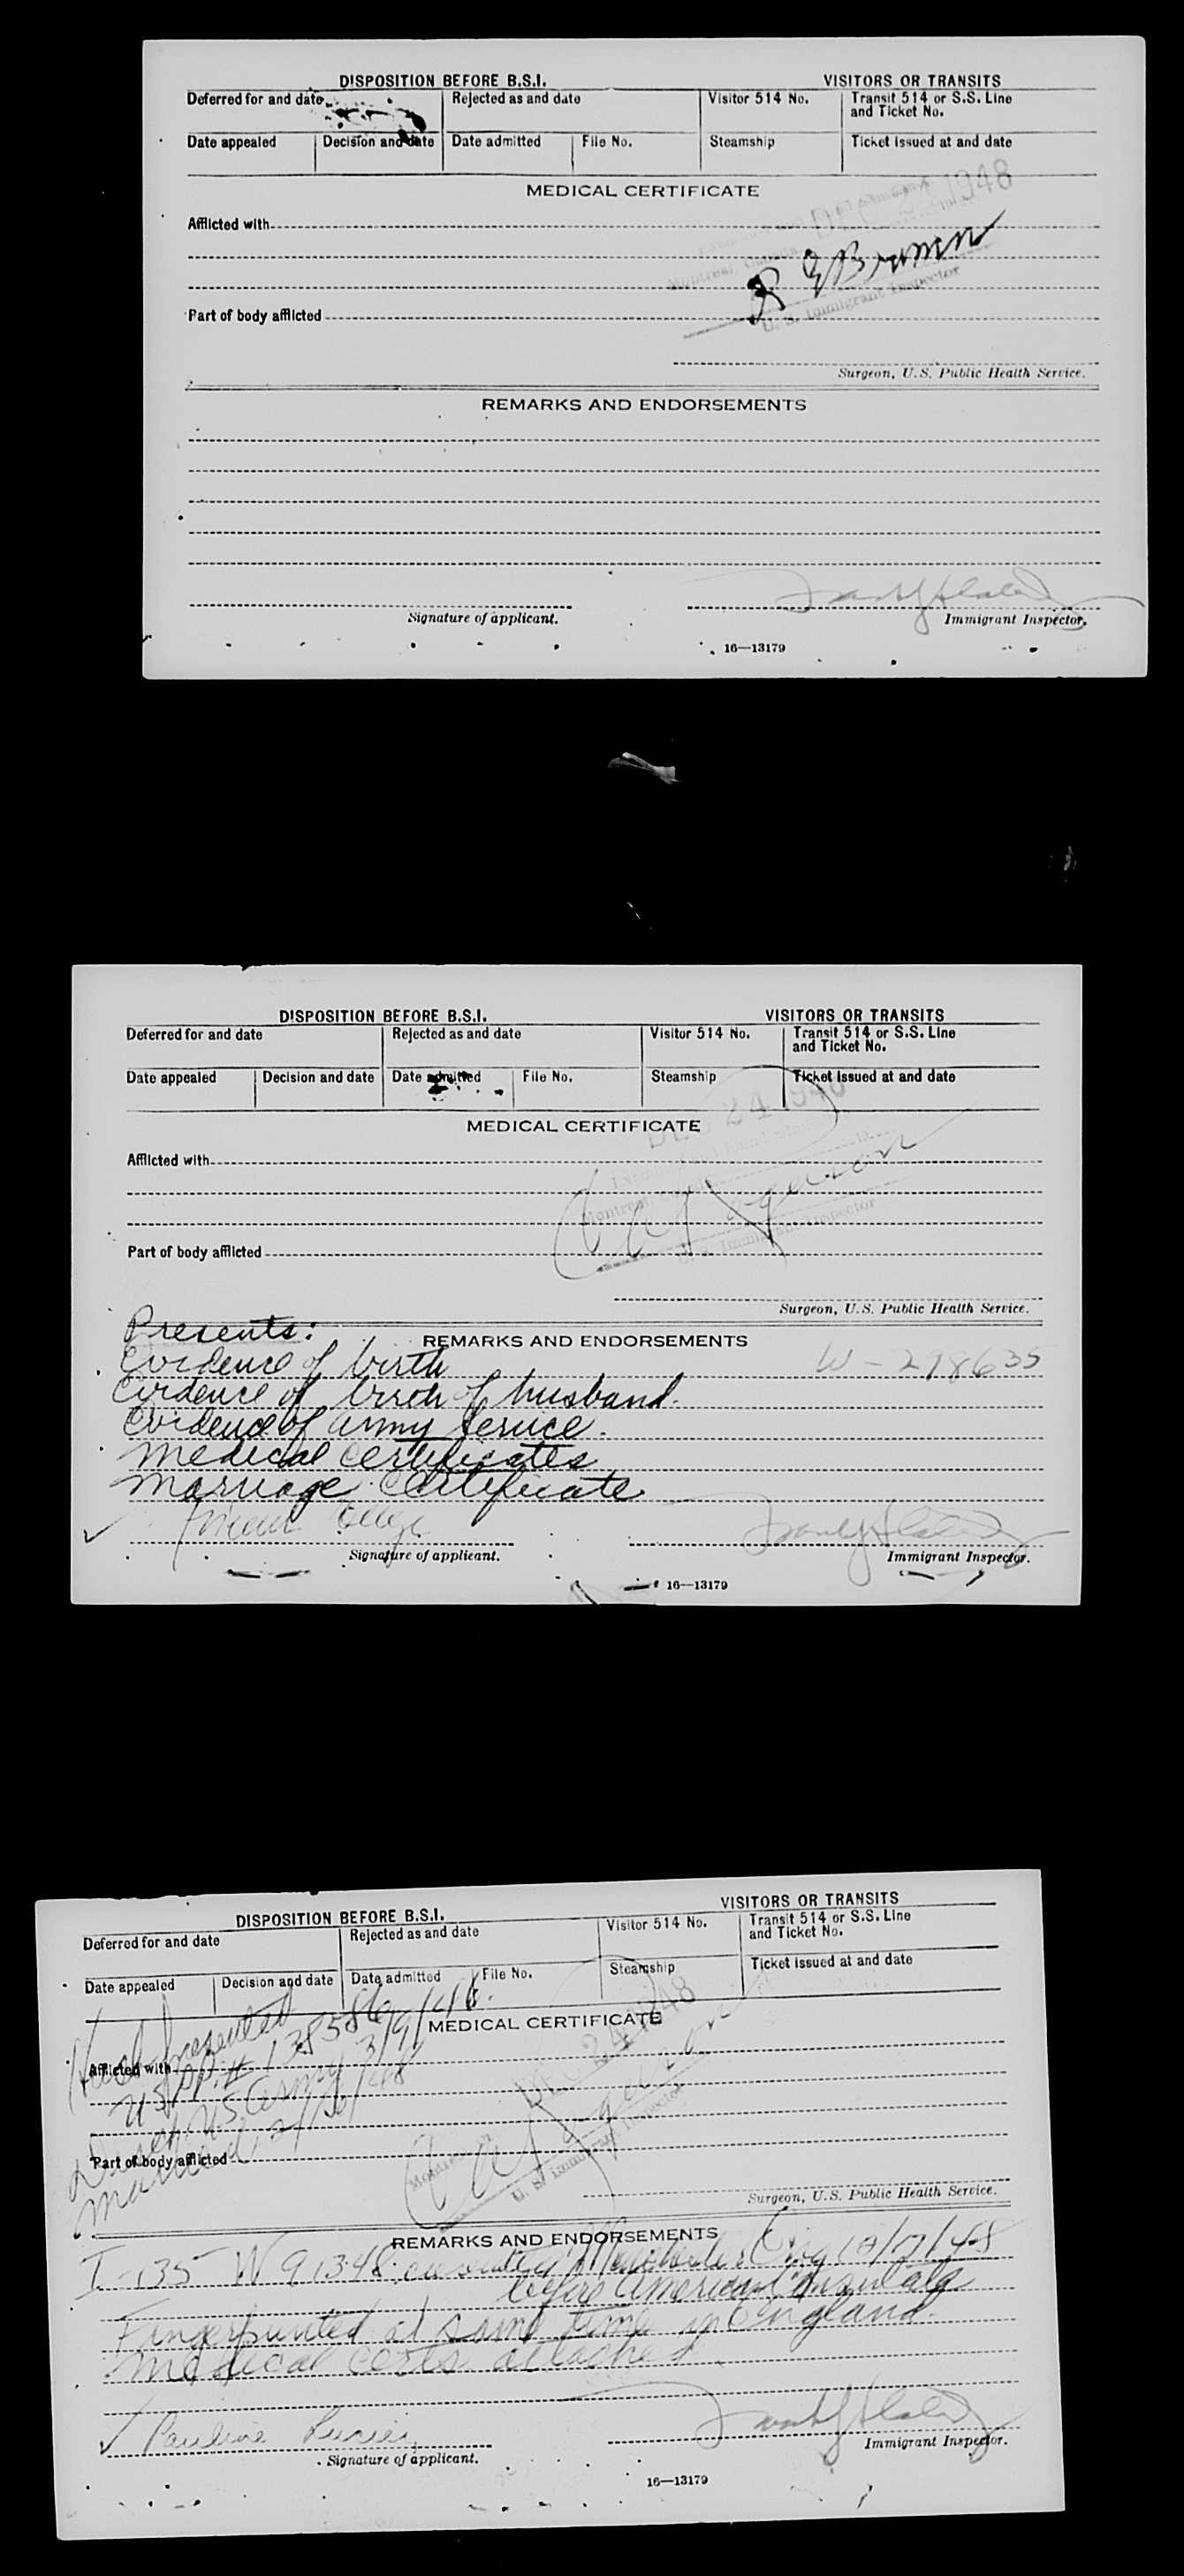 DISPOSITION BEFORE B.S.I. VISITORS OR TRANSITS
Deferred for and date Rejected as and date Visitor 514 No. Transit 514 or S.S. Line and Ticket No.
Date appealed Decision and date Date admitted File No. Steamship Ticket issued at and date
MEDICAL CERTIFICATE
1948
Afflicted with
Montreal, Canada
Brown
U. S. Immigrant Inspector
Part of body afflicted
Surgeon, U.S. Public Health Service.
REMARKS AND ENDORSEMENTS
Signature of applicant. Immigrant Inspector.
16—13179
DISPOSITION BEFORE B.S.I. VISITORS OR TRANSITS
Deferred for and date Rejected as and date Visitor 514 No. Transit 514 or S.S. Line and Ticket No.
Date appealed Decision and date Date admitted File No. Steamship Ticket issued at and date
DEC 24 1948
MEDICAL CERTIFICATE
Afflicted with
Montreal
U. S. Immigrant Inspector
Part of body afflicted
Surgeon, U.S. Public Health Service.
Presents:
REMARKS AND ENDORSEMENTS
Evidence of birth W-298635
Evidence of birth of husband.
Evidence of army service.
Medical certificates
Marriage Certificate
Signature of applicant. Immigrant Inspector.
16—13179
DISPOSITION BEFORE B.S.I. VISITORS OR TRANSITS
Deferred for and date Rejected as and date Visitor 514 No. Transit 514 or S.S. Line and Ticket No.
Date appealed Decision and date Date admitted File No. Steamship Ticket issued at and date
MEDICAL CERTIFICATE
DEC 24 1948
Husb presented
Afflicted with
US PP. # 138586
US Army 3/9/46.
Part of body afflicted
Married
U. S. Immigrant Inspector
Surgeon, U.S. Public Health Service.
REMARKS AND ENDORSEMENTS
I-135 W 91348 executed Manchester Eng
before American
Fingerprinted at same time in England.
Medical certs attached.
Pauline
Signature of applicant. Immigrant Inspector.
16—13179